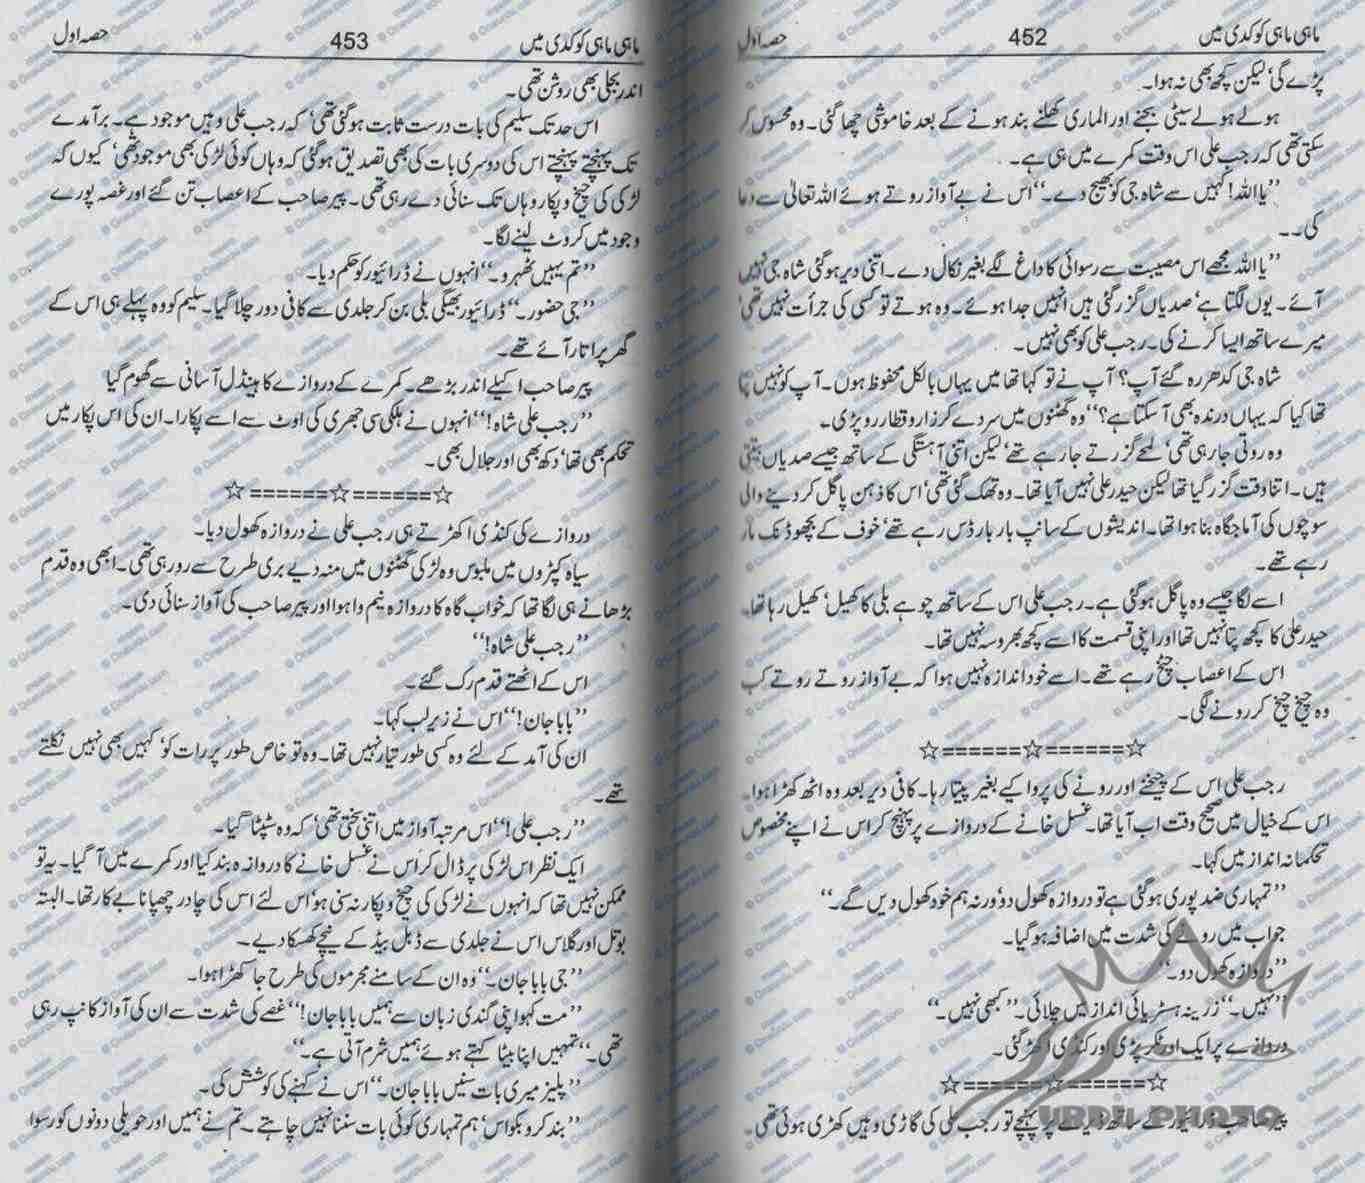 ماہی ماہی کوکدی میں 452 حصہ اول
پڑے گی‘ لیکن کچھ بھی نہ ہوا۔
ہولے ہولے سیٹی بجنے اور الماری کھلنے بند ہونے کے بعد خاموشی چھا گئی۔ وہ محسوس کر
سکتی تھی کہ رجب علی اس وقت کمرے میں ہی ہے۔
’’یا اللہ! کہیں سے شاہ جی کو بھیج دے۔‘‘ اس نے بے آواز روتے ہوئے اللہ تعالیٰ سے دعا
کی۔۔
’’یا اللہ مجھے اس مصیبت سے رسوائی کا داغ لگے بغیر نکال دے۔ اتنی دیر ہو گئی شاہ جی نہیں
آئے۔ یوں لگتا ہے‘ صدیاں گزر گئی ہیں انہیں جدا ہوئے۔ وہ ہوتے تو کسی کی جرأت نہیں تھی
میرے ساتھ ایسا کرنے کی۔ رجب علی کو بھی نہیں۔
شاہ جی کدھر رہ گئے آپ؟ آپ نے تو کہا تھا میں یہاں بالکل محفوظ ہوں۔ آپ کو نہیں پتا
تھا کیا کہ یہاں درندہ بھی آ سکتا ہے؟‘‘ وہ گھٹنوں میں سر دے کر زار و قطار رو پڑی۔
وہ روتی جا رہی تھی‘ لمحے گزرتے جا رہے تھے‘ لیکن اتنی آہستگی کے ساتھ جیسے صدیاں بیتتی
ہیں۔ اتنا وقت گزر گیا تھا لیکن حیدر علی نہیں آیا تھا۔ وہ تھک گئی تھی‘ اس کا ذہن پاگل کر دینے والی
سوچوں کی آماجگاہ بنا ہوا تھا۔ اندیشوں کے سانپ بار بار ڈس رہے تھے‘ خوف کے بچھو ڈنک مار
رہے تھے۔
اسے لگا جیسے وہ پاگل ہو گئی ہے۔ رجب علی اس کے ساتھ چوہے بلی کا کھیل‘ کھیل رہا تھا۔
حیدر علی کا کچھ پتا نہیں تھا اور اپنی قسمت کا اسے کچھ بھروسہ نہیں تھا۔
اس کے اعصاب چٹخ رہے تھے۔ اسے خود اندازہ نہیں ہوا کہ بے آواز روتے روتے کب
وہ چیخ چیخ کر رونے لگی۔
☆======☆======☆
رجب علی اس کے چیخنے اور رونے کی پروا کیے بغیر پیتا رہا۔ کافی دیر بعد وہ اٹھ کھڑا ہوا۔
اس کے خیال میں صحیح وقت اب آیا تھا۔ غسل خانے کے دروازے پر پہنچ کر اس نے اپنے مخصوص
تحکمانہ انداز میں کہا۔
’’تمہاری ضد پوری ہو گئی ہے تو دروازہ کھول دو‘ ورنہ ہم خود کھول دیں گے۔‘‘
جواب میں رونے کی شدت میں اضافہ ہو گیا۔
’’دروازہ کھول دو۔‘‘
’’نہیں۔‘‘ زرینہ ہسٹریائی انداز میں چلائی۔ ’’کبھی نہیں۔‘‘
دروازے پر ایک اور ٹکر پڑی اور کنڈی اکھڑ گئی۔
☆======☆======☆
پیر صاحب ڈرائیور کے ساتھ ڈیرے پر پہنچے تو رجب علی کی گاڑی وہیں کھڑی ہوئی تھی۔
URDU PHOTO
ماہی ماہی کوکدی میں 453 حصہ اول
اندر بجلی بھی روشن تھی۔
اس حد تک سلیم کی بات درست ثابت ہو گئی تھی‘ کہ رجب علی وہیں موجود ہے۔ برآمدے
تک پہنچتے پہنچتے اس کی دوسری بات کی بھی تصدیق ہو گئی کہ وہاں کوئی لڑکی بھی موجود تھی‘ کیوں کہ
لڑکی کی چیخ و پکار وہاں تک سنائی دے رہی تھی۔ پیر صاحب کے اعصاب تن گئے اور غصہ پورے
وجود میں کروٹ لینے لگا۔
’’تم یہیں ٹھہرو۔‘‘ انہوں نے ڈرائیور کو حکم دیا۔
’’جی حضور۔‘‘ ڈرائیور بھیگی بلی بن کر جلدی سے کافی دور چلا گیا۔ سلیم کو وہ پہلے ہی اس کے
گھر پر اتار آئے تھے۔
پیر صاحب اکیلے اندر بڑھے۔ کمرے کے دروازے کا ہینڈل آسانی سے گھوم گیا
’’رجب علی شاہ!‘‘ انہوں نے ہلکی سی جھری کی اوٹ سے اسے پکارا۔ ان کی اس پکار میں
تحکم بھی تھا‘ دکھ بھی اور جلال بھی۔
☆======☆======☆
دروازے کی کنڈی اکھڑتے ہی رجب علی نے دروازہ کھول دیا۔
سیاہ کپڑوں میں ملبوس وہ لڑکی گھٹنوں میں منہ دیے بری طرح سے رو رہی تھی۔ ابھی وہ قدم
بڑھانے ہی لگا تھا کہ خواب گاہ کا دروازہ نیم وا ہوا اور پیر صاحب کی آواز سنائی دی۔
’’رجب علی شاہ!‘‘
اس کے اٹھتے قدم رک گئے۔
’’بابا جان!‘‘ اس نے زیر لب کہا۔
ان کی آمد کے لئے وہ کسی طور تیار نہیں تھا۔ وہ تو خاص طور پر رات کو‘ کہیں بھی نہیں نکلتے
تھے۔
’’رجب علی!‘‘ اس مرتبہ آواز میں اتنی سختی تھی‘ کہ وہ سٹپٹا گیا۔
ایک نظر اس لڑکی پر ڈال کر اس نے غسل خانے کا دروازہ بند کیا اور کمرے میں آ گیا۔ یہ تو
ممکن نہیں تھا کہ انہوں نے لڑکی کی چیخ و پکار نہ سنی ہو‘ اس لئے اس کی چادر چھپانا بے کار تھا۔ البتہ
بوتل اور گلاس اس نے جلدی سے ڈبل بیڈ کے نیچے کھسکا دیے۔
’’جی بابا جان۔‘‘ وہ ان کے سامنے مجرموں کی طرح جا کھڑا ہوا۔
’’مت کہو اپنی گندی زبان سے ہمیں بابا جان!‘‘ غصے کی شدت سے ان کی آواز کانپ رہی
تھی۔ ’’تمہیں اپنا بیٹا کہتے ہوئے ہمیں شرم آتی ہے۔‘‘
’’پلیز میری بات سنیں بابا جان۔‘‘ اس نے کہنے کی کوشش کی۔
’’بند کرو بکواس‘ ہم تمہاری کوئی بات سننا نہیں چاہتے۔ تم نے ہمیں اور حویلی دونوں کو رسوا